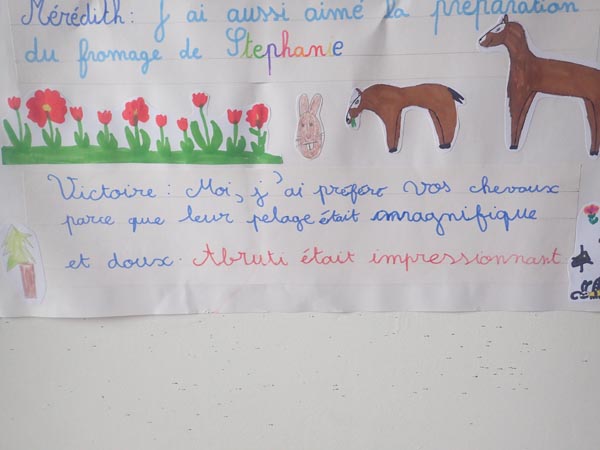 Mérédith : J'ai aussi aimé la préparation
du fromage de Stephanie
Victoire : Moi, j'ai préféré vos chevaux
parce que leur pelage était magnifique
et doux. Abruti était impressionnant